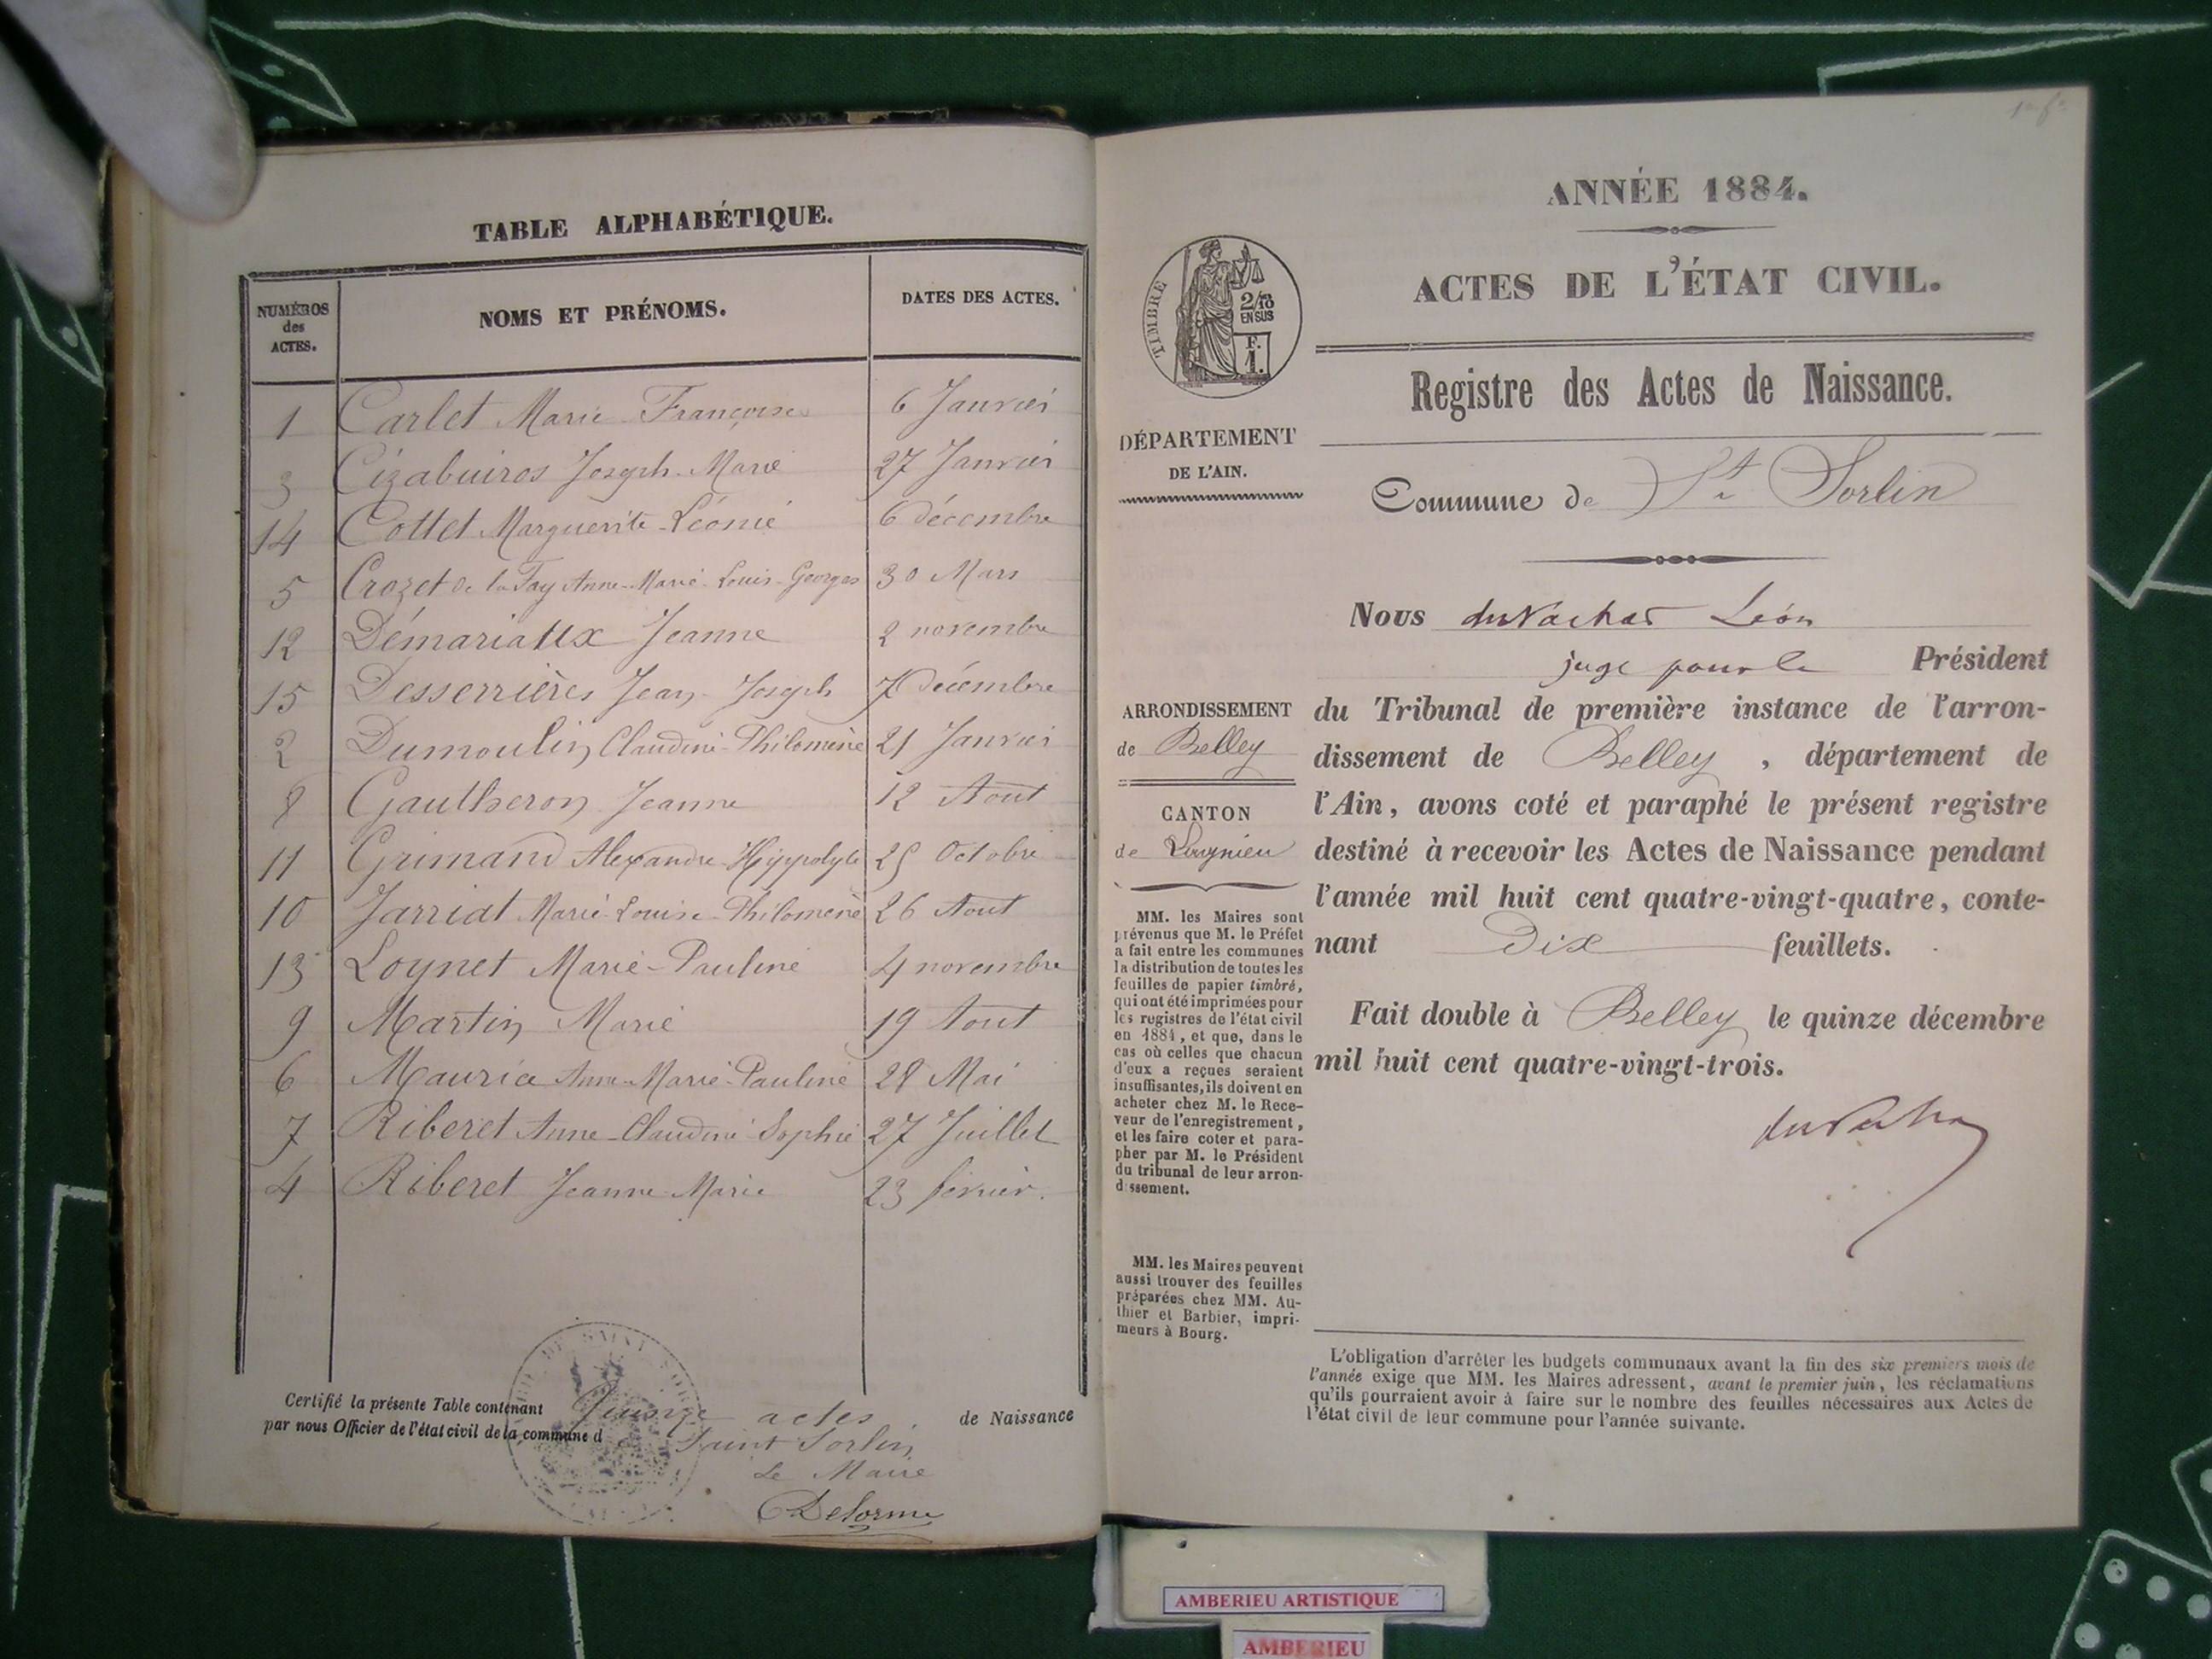 TABLE ALPHABÉTIQUE.
NUMÉROS des ACTES. NOMS ET PRÉNOMS. DATES DES ACTES.
1 Carlet Marie Françoise 6 Janvier
3 Cizabuiros Joseph-Marie 27 Janvier
14 Cottet Marguerite-Léonie 6 décembre
5 Crozet de la Fay Anne-Marie-Louis-Georges 30 Mars
12 Démariaux Jeanne 2 novembre
15 Desserrières Jean-Joseph 7 Décembre
2 Dumoulin Claudine-Philomène 21 Janvier
8 Gautheron Jeanne 12 Aout
11 Grimand Alexandre-Hippolyte 25 Octobre
10 Jarriat Marie-Louise-Philomène 26 Aout
13 Loynet Marie-Pauline 4 novembre
9 Martin Marie 19 Aout
6 Maurice Anne-Marie-Pauline 28 Mai
7 Riberet Anne-Claudine-Sophie 27 Juillet
4 Riberet Jeanne-Marie 23 février.
Certifié la présente Table contenant Quinze actes de Naissance
par nous Officier de l'état civil de la commune d Saint Sorlin
Le Maire
Delorme
ANNÉE 1884.
ACTES DE L'ÉTAT CIVIL.
TIMBRE
2/10
EN SUS
F.
1.
Registre des Actes de Naissance.
DÉPARTEMENT
DE L'AIN.
Commune de St Sorlin
Nous duVachat Léon
juge pour le Président
du Tribunal de première instance de l'arron-
dissement de Belley, département de
l'Ain, avons coté et paraphé le présent registre
destiné à recevoir les Actes de Naissance pendant
l'année mil huit cent quatre-vingt-quatre, conte-
nant Dix feuillets.
Fait double à Belley le quinze décembre
mil huit cent quatre-vingt-trois.
duVachat
ARRONDISSEMENT
de Belley
CANTON
de Lagnieu
MM. les Maires sont
prévenus que M. le Préfet
a fait entre les communes
la distribution de toutes les
feuilles de papier timbré,
qui ont été imprimées pour
les registres de l'état civil
en 1884, et que, dans le
cas où celles que chacun
d'eux a reçues seraient
insuffisantes, ils doivent en
acheter chez M. le Rece-
veur de l'enregistrement,
et les faire coter et para-
pher par M. le Président
du tribunal de leur arron-
dissement.
MM. les Maires peuvent
aussi trouver des feuilles
préparées chez MM. Au-
thier et Barbier, impri-
meurs à Bourg.
L'obligation d'arrêter les budgets communaux avant la fin des six premiers mois de
l'année exige que MM. les Maires adressent, avant le premier juin, les réclamations
qu'ils pourraient avoir à faire sur le nombre des feuilles nécessaires aux Actes de
l'état civil de leur commune pour l'année suivante.
AMBERIEU ARTISTIQUE
AMBERIEU